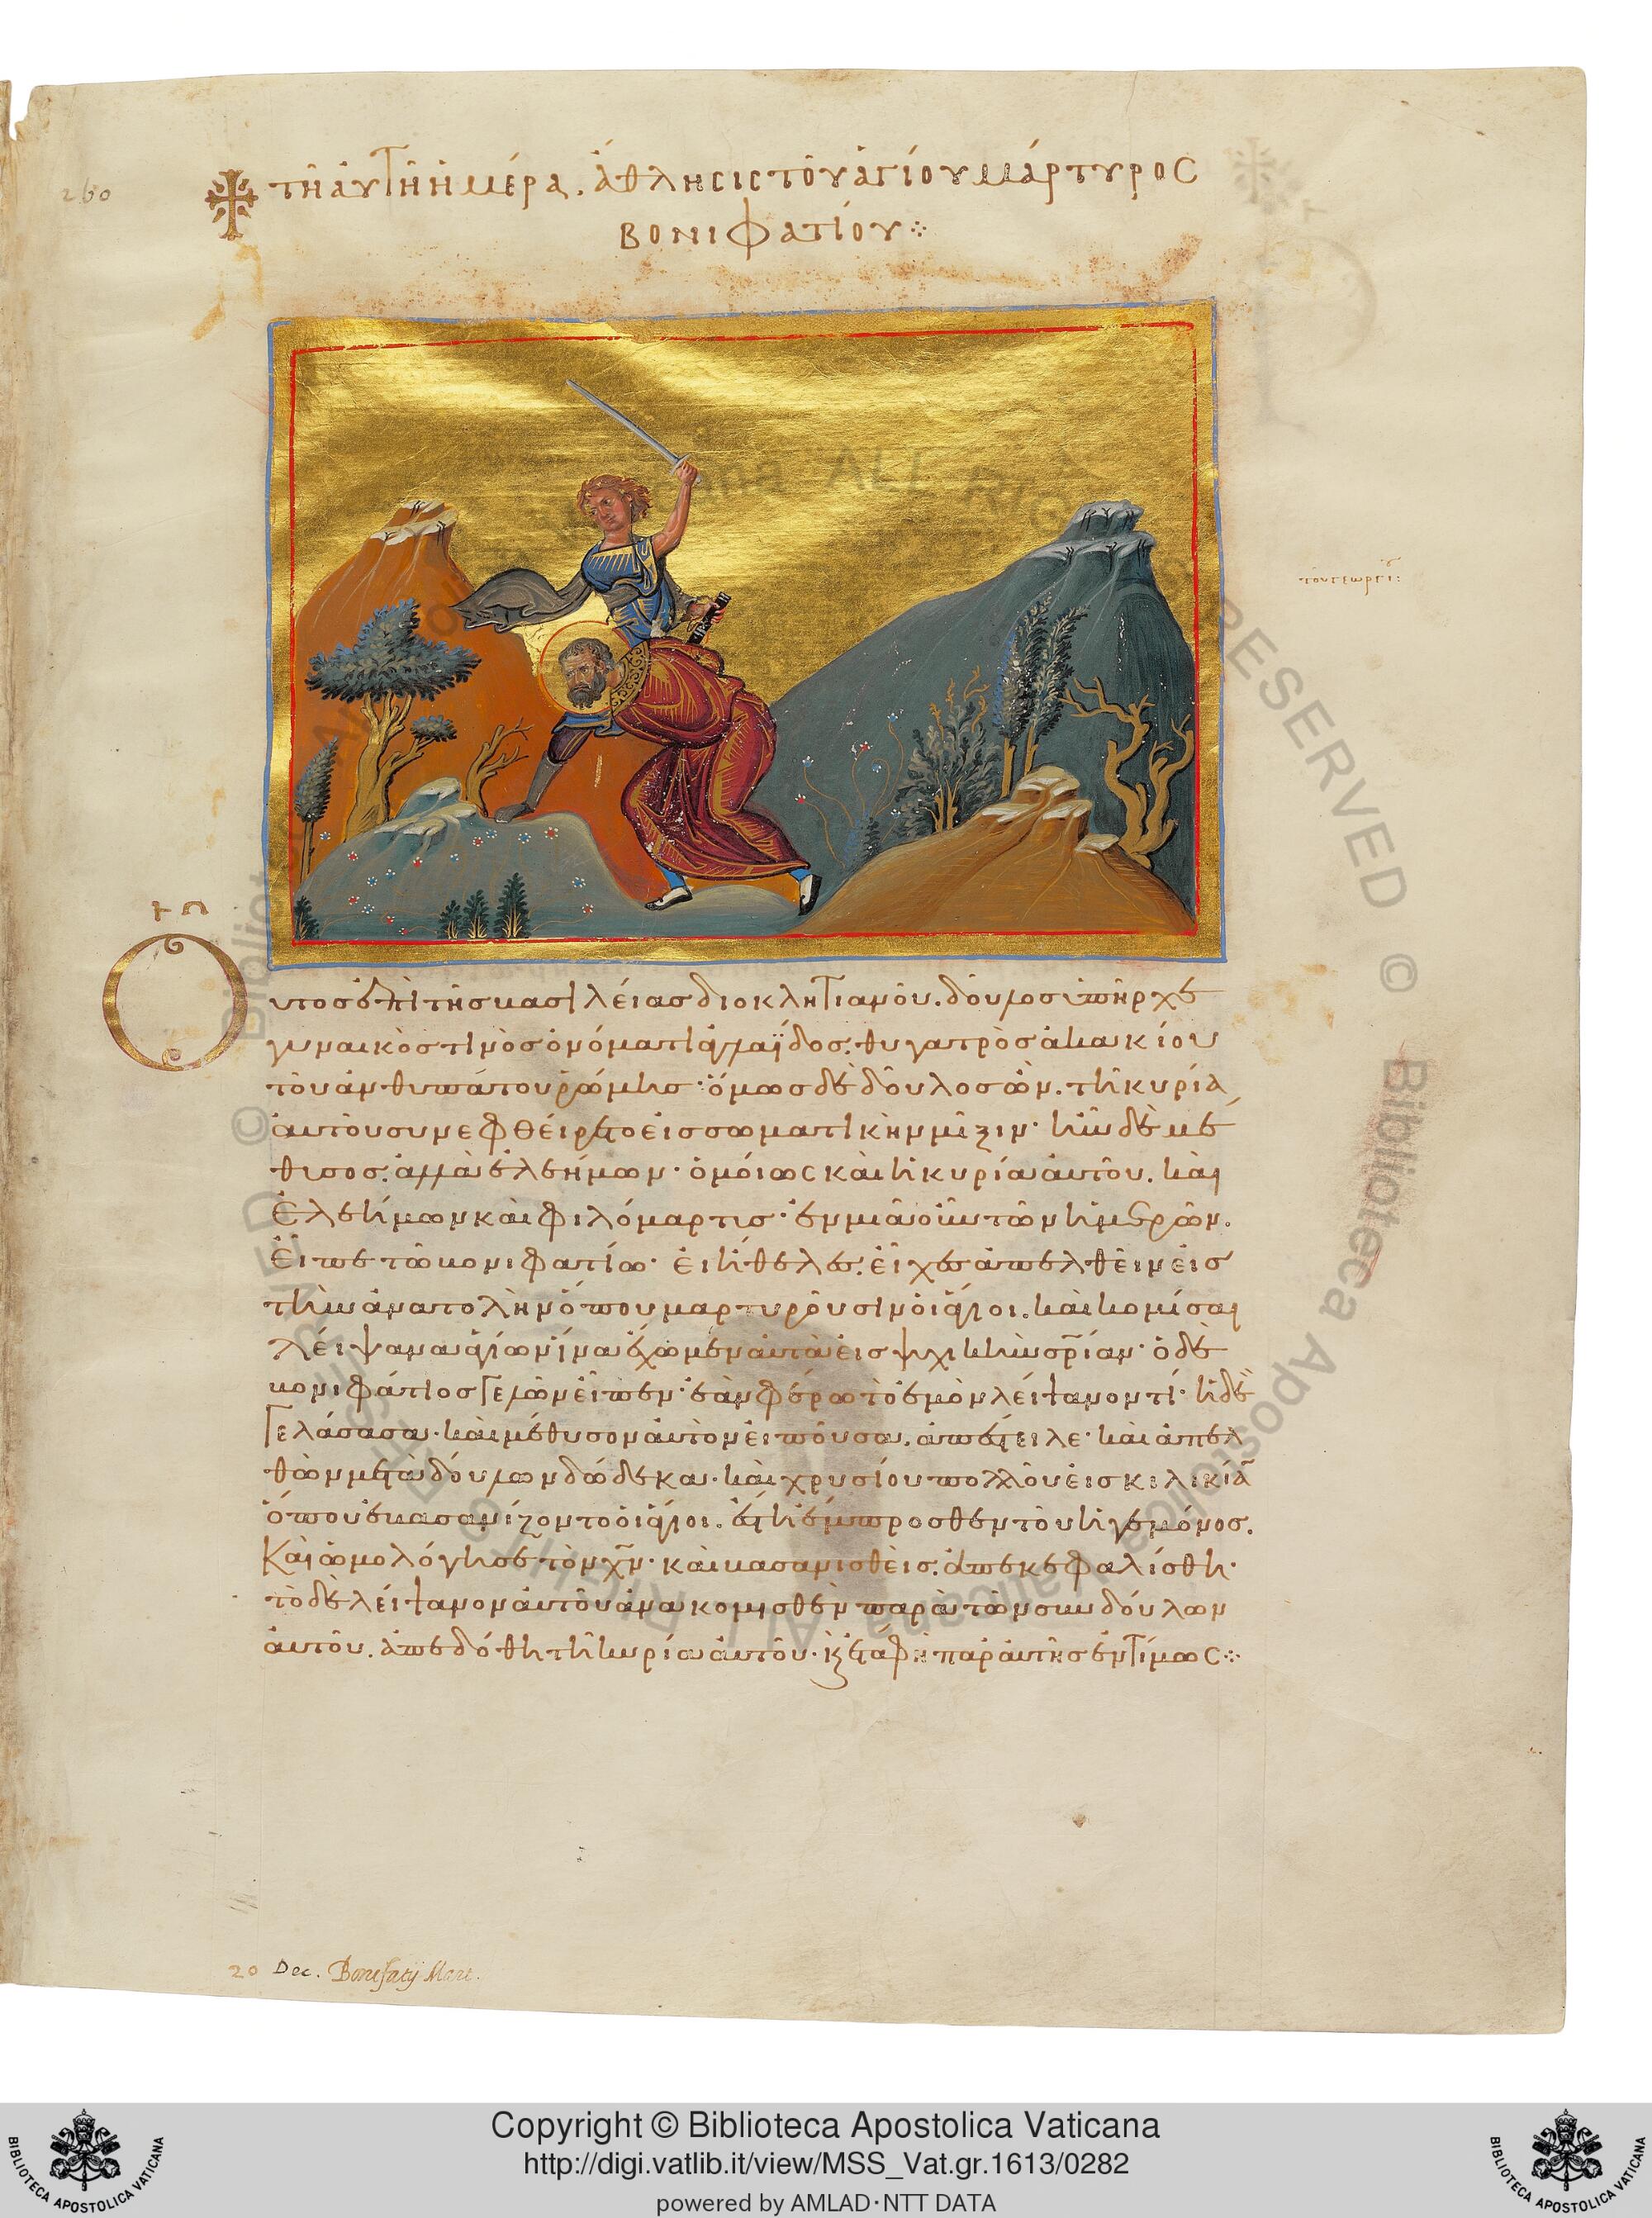 260
τῇ αὐτῇ ἡμέρα. ἄθλησις τοῦ ἁγίου μάρτυρος
βονιφατίου
Οὗτος ἐπὶ τῆς βασιλείας διοκλητιανοῦ. δοῦλος ὑπῆρχε
γυναικὸς τινὸς ὀνόματι ἀγλαΐδος. θυγατρὸς ἀκακίου
τοῦ ἀνθυπάτου ῥώμης· ὅμως δὲ δοῦλος ὢν. τῇ κυρία
αὐτοῦ συνεφθείρετο εἰς σωματικὴν μίξιν· ἦν δὲ μέ
θυσος. ἀλλὰ ἐλεήμων· ὁμοίως καὶ ἡ κυρία αὐτοῦ. καὶ
ἐλεήμων καὶ φιλόμαρτις· ἐν μιᾶ οὖν τῶν ἡμερῶν.
εἶπε τῶ βονιφατίω· εἰ ἤθελες. εἶχες ἀπελθεῖν εἰς
τὴν ἀνατολὴν ὅπου μαρτυροῦσιν οἱ ἅγιοι. καὶ κομίσαι
λείψανα ἁγίων ἵνα ἔχωμεν αὐτὰ εἰς ψυχικὴν σρίαν· ὁ δὲ
βονιφάτιος γελῶν εἶπεν· ἐὰν φέρω τὸ ἐμὸν λείψανον τί· ἡ δὲ
γελάσασα. καὶ μέθυσον αὐτὸν εἰποῦσα. ἀπέστειλε· καὶ ἀπελ
θὼν μετὰ δούλων δώδεκα. καὶ χρυσίου πολλοῦ εἰς κιλικίαν
ὅπου ἐβασανίζοντο οἱ ἅγιοι. ἔστη ἔμπροσθεν τοῦ ἡγεμόνος.
Καὶ ὡμολόγησε τὸν χν· καὶ βασανισθεὶς. ἀπεκεφαλίσθη·
τὸ δὲ λείψανον αὐτοῦ ἀνακομισθὲν παρὰ τῶν συνδούλων
αὐτοῦ. ἀπεδόθη τῇ κυρία αὐτοῦ· κ ἐτάφη παρ' αὐτῆς ἐντίμως
20 Dec. Bonifatij Mart.
Copyright © Biblioteca Apostolica Vaticana
http://digi.vatlib.it/view/MSS_Vat.gr.1613/0282
powered by AMLAD·NTT DATA
BIBLIOTECA APOSTOLICA VATICANA
BIBLIOTECA APOSTOLICA VATICANA